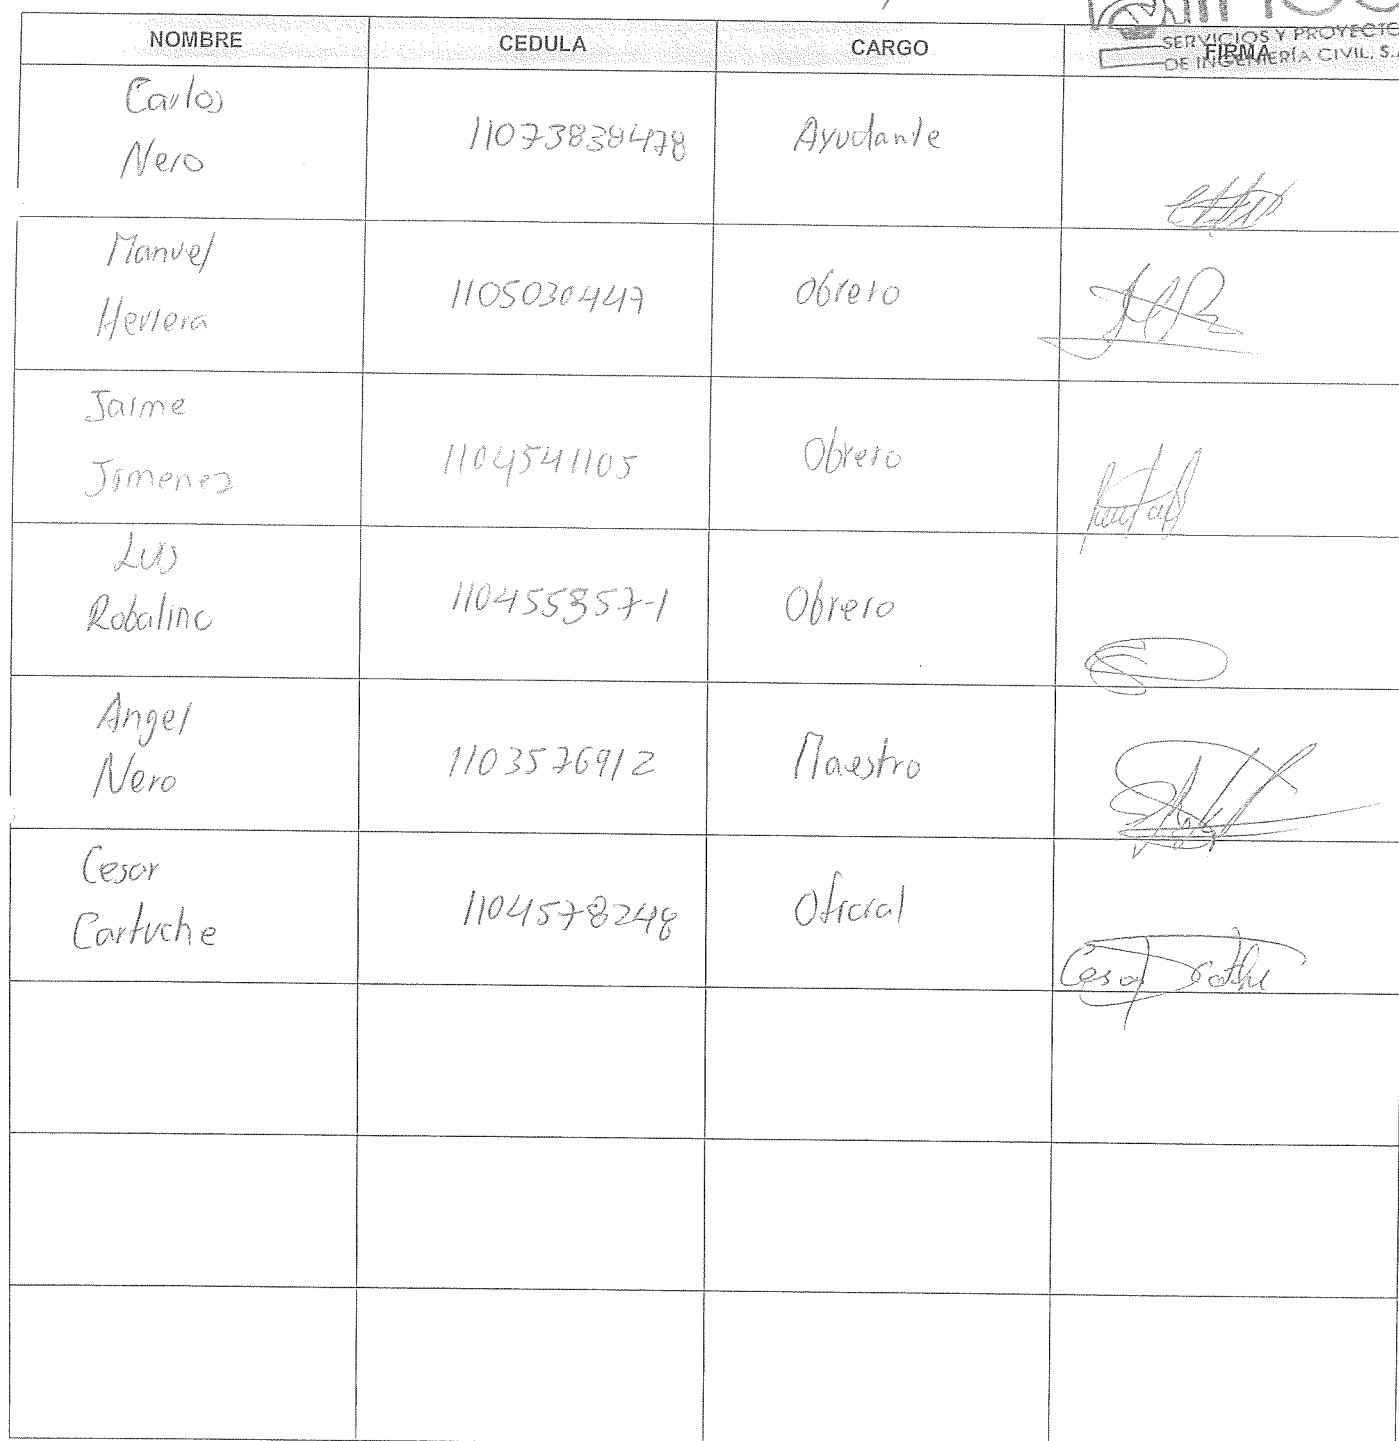 NOMBRE CEDULA CARGO FIRMA
SERVICIOS Y PROYECTO
DE INGENIERÍA CIVIL, S.A
Carlos
Nero
11073838478 Ayudante
Manuel
Herrera
1105030447 Obrero
Jaime
Jimenez
1104541105 Obrero
Luis
Robalino
110455857-1 Obrero
Angel
Nero
1103576912 Maestro
Cesar
Cartuche
1104578248 Oficial
Cesar